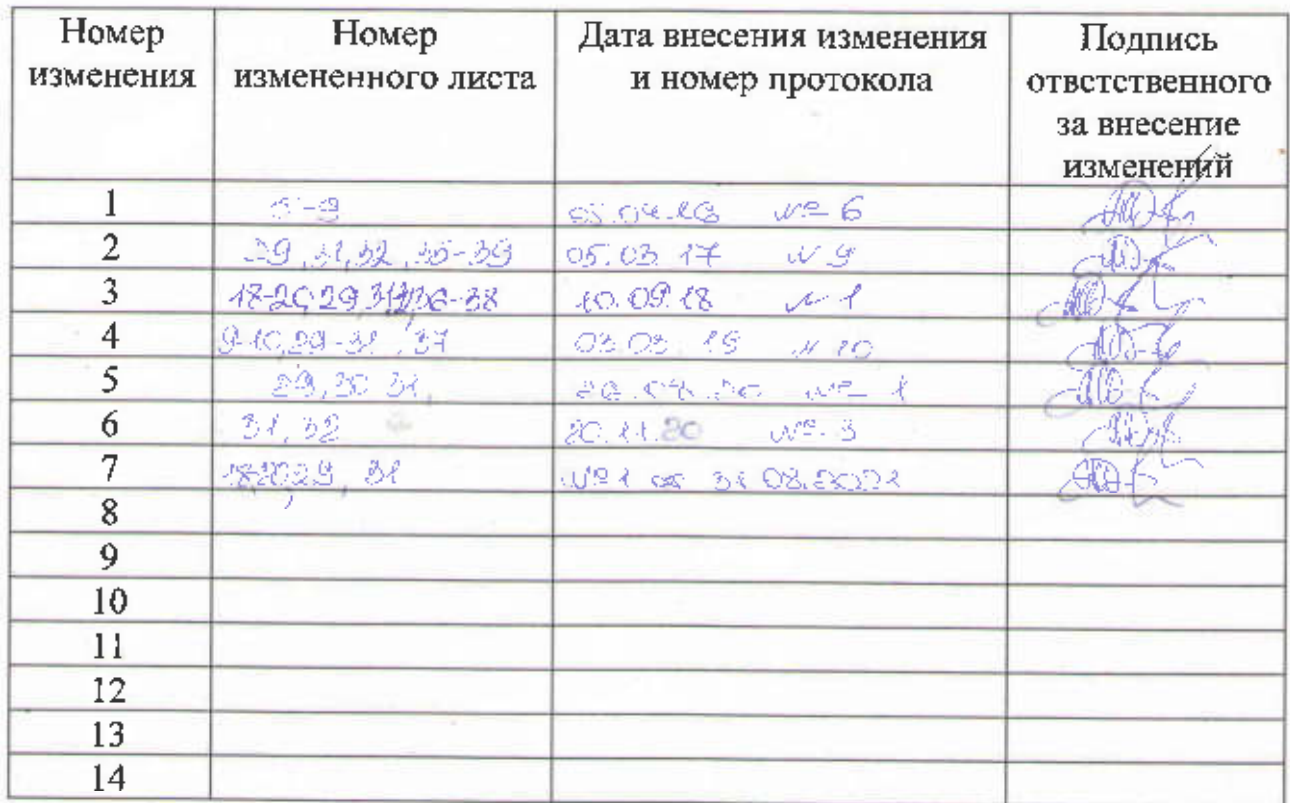 Номер изменения Номер измененного листа Дата внесения изменения и номер протокола Подпись ответственного за внесение изменений
1 №6
2 29,31,32,35-39 05.03.17 N 9
3 10.09.18 N 1
4 9-10,29-31,37 03.03.19 N 10
5 29,30 31, №1
6 31,32 20.11.20 №3
7 31 №1 от 31.08.2021
8
9
10
11
12
13
14